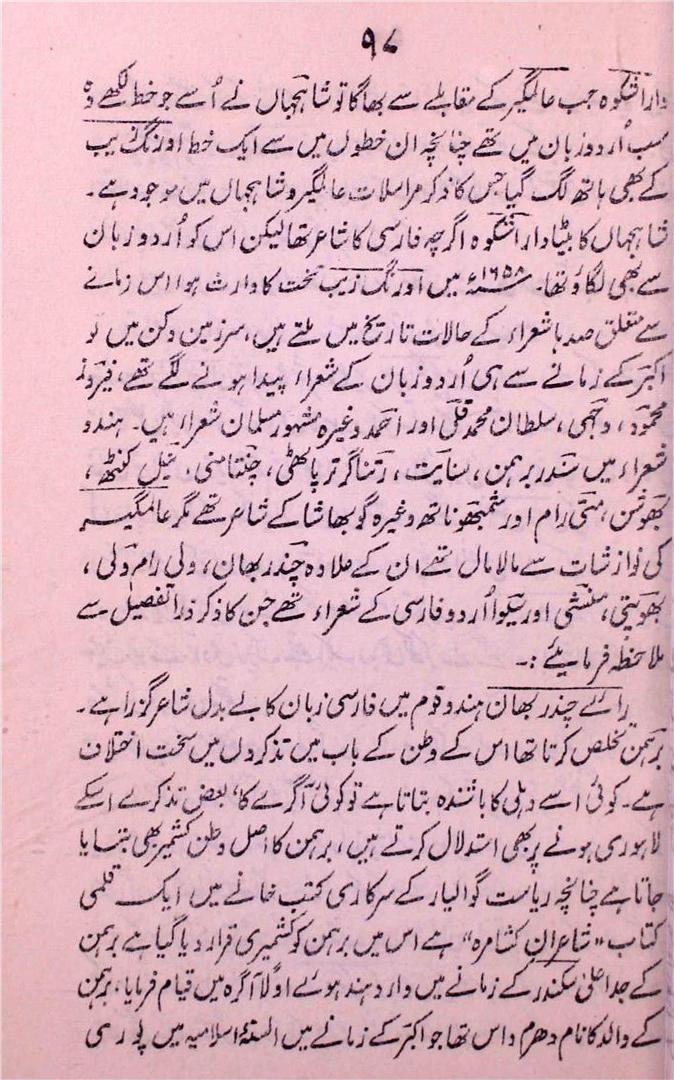 ۹۷
دارا شکوہ جب عالمگیر کے مقابلے سے بھاگا تو شاہجہاں نے اُسے جو خط لکھے وہ
سب اُردو زبان میں تھے چنانچہ ان خطوں میں سے ایک خط اورنگ زیب
کے بھی ہاتھ لگ گیا جس کا ذکر مراسلات عالمگیر و شاہجہاں میں موجود ہے۔
شاہجہاں کا بیٹا دارا شکوہ اگرچہ فارسی کا شاعر تھا لیکن اس کو اُردو زبان
سے بھی لگاؤ تھا۔ ۱۶۵۸ء میں اورنگ زیب تخت کا وارث ہوا اس زمانے
سے متعلق صدہا شعراء کے حالات تاریخ میں ملتے ہیں، سرزمین دکن میں تو
اکبر کے زمانے سے ہی اُردو زبان کے شعراء پیدا ہونے لگے تھے، فیروز
محمود، وجہی، سلطان محمد قلی اور احمد وغیرہ مشہور مسلمان شعراء ہیں۔ ہندو
شعراء میں سندر برہمن، رتناگر ترپاٹھی، چنتامنی، نیل کنٹھ،
بھوشن، متی رام اور شمبھوناتھ وغیرہ گو بھاشا کے شاعر تھے مگر عالمگیر
کی نوازشات سے مالا مال تھے ان کے علاوہ چندر بھان، ولی رام ولی،
بھوپتی، منشی اور اُردو فارسی کے شعراء تھے جن کا ذکر ذرا تفصیل سے
ملاحظہ فرمایئے :۔
رائے چندر بھان ہندو قوم میں فارسی زبان کا بے بدل شاعر گزرا ہے۔
برہمن تخلص کرتا تھا اس کے وطن کے باب میں تذکروں میں سخت اختلاف
ہے۔ کوئی اسے دہلی کا باشندہ بتاتا ہے تو کوئی آگرے کا، بعض تذکرے اسکے
لاہوری ہونے پر بھی استدلال کرتے ہیں، برہمن کا اصل وطن کشمیر بھی بتایا
جاتا ہے چنانچہ ریاست گوالیار کے سرکاری کتب خانے میں ایک قلمی
کتاب "شاعران کشامرہ" ہے اس میں برہمن کو کشمیری قرار دیا گیا ہے برہمن
کے جد اعلیٰ سکندر کے زمانے میں وارد ہند ہوئے اوّلاً آگرہ میں قیام فرمایا، برہمن
کے والد کا نام دھرم داس تھا جو اکبر کے زمانے میں السنۂ اسلامیہ میں پوری